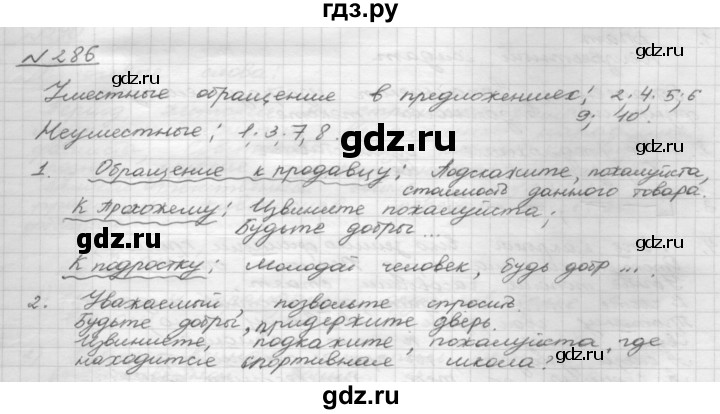 гдз.ру
№ 286
gdz.ru gdz.ru
Уместные обращение в предложениех; 2. 4. 5; 6
9; 10.
Неуместные; 1. 3. 7, 8.
gdz.ru gdz.ru
1. Обращение к продавцу; Подскажите, пожалуйста,
стоимость данного товара.
К Прохожему; Извините пожалуйста;
Будьте добры...
gdz.ru gdz.ru
К подростку; Молодой человек, будь добр ... .
2. Уважаемый, позвольте спросить.
Будьте добры, придержите дверь.
gdz.ru gdz.ru
Извините, подскажите, пожалуйста, где
находится спортивная школа?
gdz.ru gdz.ru